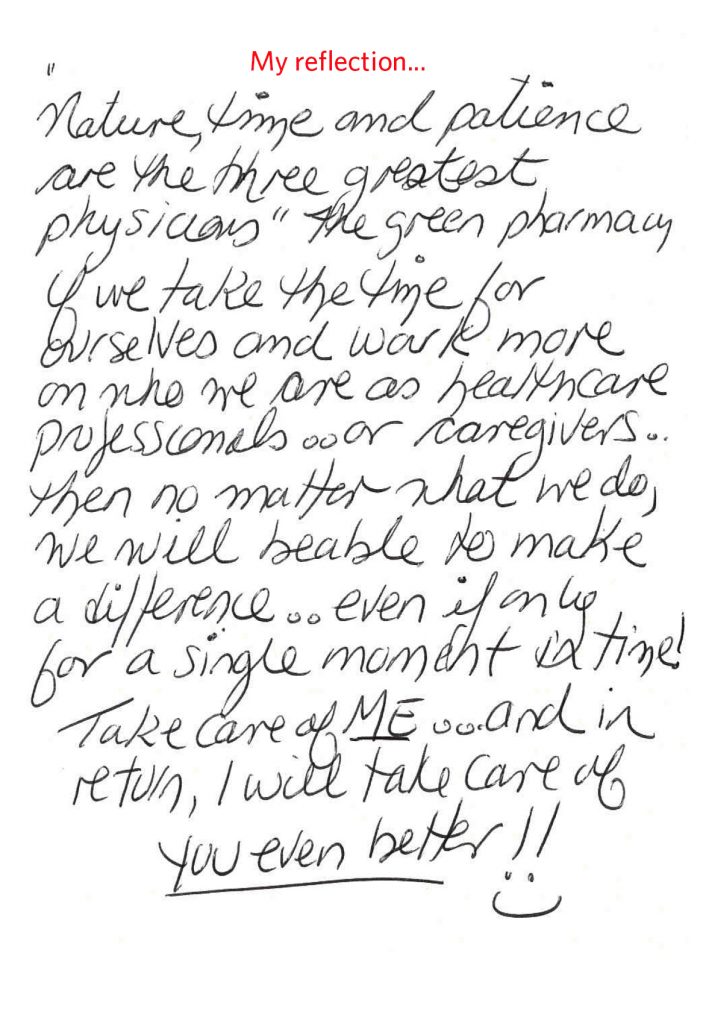 My reflection...
"Nature, time and patience
are the three greatest
physicians" the green pharmacy
If we take the time for
ourselves and work more
on who we are as healthcare
professionals...or caregivers..
then no matter what we do,
we will be able to make
a difference...even if only
for a single moment in time!
Take care of ME ....and in
return, I will take care of
you even better!!